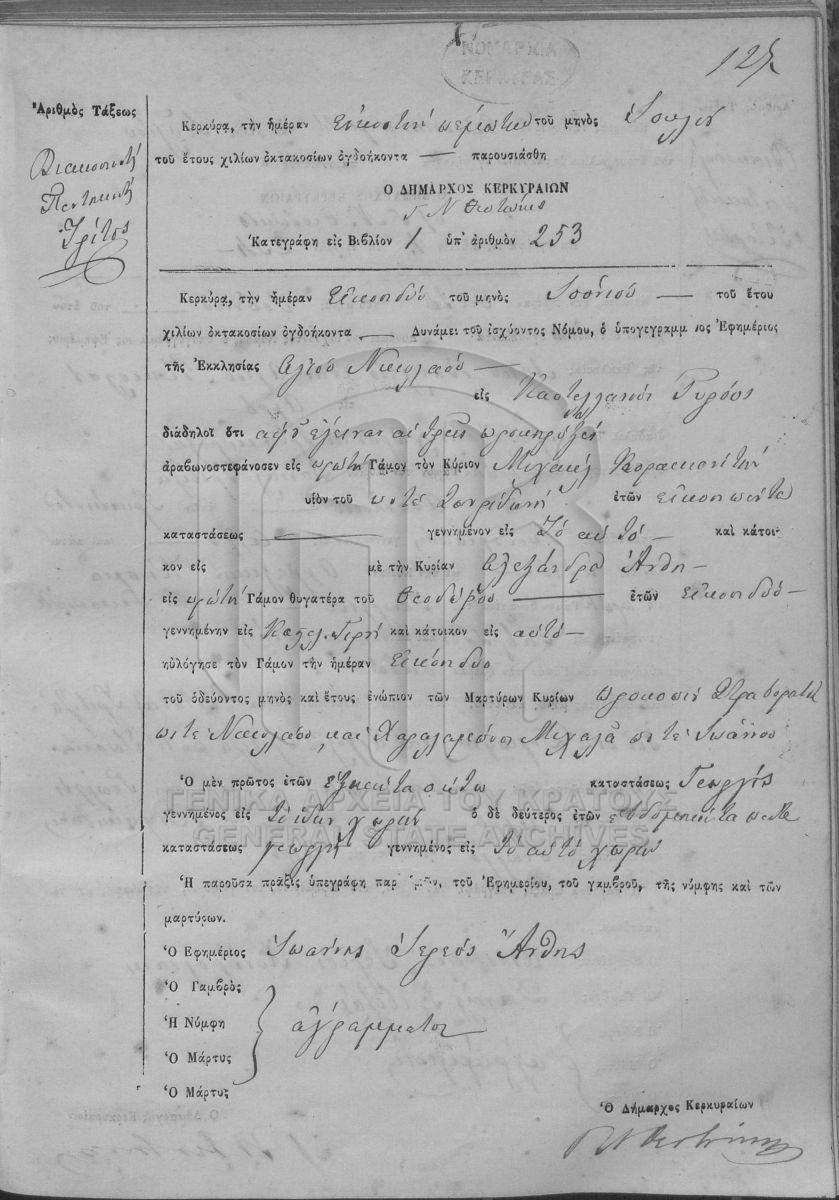 ΝΟΜΑΡΧΙΑ
ΚΕΡΚΥΡΑΣ
Ἀριθμὸς Τάξεως
Διακοσιοστὴ
Πεντηκοστὴ
Τρίτος
Κερκύρᾳ, τὴν ἡμέραν Εἰκοστὴν πέμπτην τοῦ μηνὸς Ἰουλίου
τοῦ ἔτους χιλίων ὀκτακοσίων ὀγδοήκοντα — παρουσιάσθη
Ο ΔΗΜΑΡΧΟΣ ΚΕΡΚΥΡΑΙΩΝ
Γ Ν Θεοτόκης
Κατεγράφη εἰς Βιβλίον 1 ὑπ' ἀριθμὸν 253
Κερκύρᾳ, τὴν ἡμέραν Εἴκοσι δύο τοῦ μηνὸς Ἰουνίου — τοῦ ἔτου
χιλίων ὀκτακοσίων ὀγδοήκοντα — Δυνάμει τοῦ ἰσχύοντος Νόμου, ὁ ὑπογεγραμμ νος Ἐφημέριος
τῆς Ἐκκλησίας Αγίου Νικολάου —
εἰς Καστελλάνοι Γύρου
διάδηλοῖ ὅτι αφοῦ έγειναν αι τρεῖς προκηρύξεις
ἀραβωνοστεφάνοσεν εἰς πρώτη Γάμον τὸν Κύριον Μιχαήλ Κορακιανίτην
υἱὸν τοῦ ποτὲ Σπυριδωνη ἐτῶν εἴκοσι πέντε
καταστάσεως — γεννημένον εἰς Τὸ αυτὸ — καὶ κάτοι-
κον εἰς μὲ τὴν Κυρίαν Αλεξάνδρα Άνθη —
εἰς πρώτη Γάμον θυγατέρα τοῦ Θεοδώρου — ἐτῶν Εἴκοσι δύο —
γεννημένην εἰς Καστελ. Γύρη καὶ κάτοικον εἰς αυτό —
ηὐλόγησε τὸν Γάμον τὴν ἡμέραν Εἴκοσι δύο
τοῦ ὁδεύοντος μηνὸς καὶ ἔτους ἐνώπιον τῶν Μαρτύρων Κυρίων Προκοπιν
ποτὲ Νικολάου και Χαράλαμπον Μιχαλᾶ ποτὲ Ιωάννου
Ὁ μὲν πρῶτος ἐτῶν Εξήκοντα οκτω καταστάσεως Γεωργός
γεννημένος εἰς Τὸ ίδιον χωρίον ὁ δὲ δεύτερος ἐτῶν εβδομήκοντα πεντε
καταστάσεως γεωργός γεννημένος εἰς Τὸ αυτὸ χωρίον
Ἡ παροῦσα πρᾶξις ὑπεγράφη παρ' ἡμῶν, τοῦ Ἐφημερίου, τοῦ γαμβροῦ, τῆς νύμφης καὶ τῶν
μαρτύρων.
Ὁ Ἐφημέριος Ἰωάννης Ἱερεὺς Ἄνθης
Ὁ Γαμβρὸς
Ἡ Νύμφη αγράμματοι
Ὁ Μάρτυς
Ὁ Μάρτυς
Ὁ Δήμαρχος Κερκυραίων
ΓΕΝΙΚΑ ΑΡΧΕΙΑ ΤΟΥ ΚΡΑΤΟΥΣ
GENERAL STATE ARCHIVES